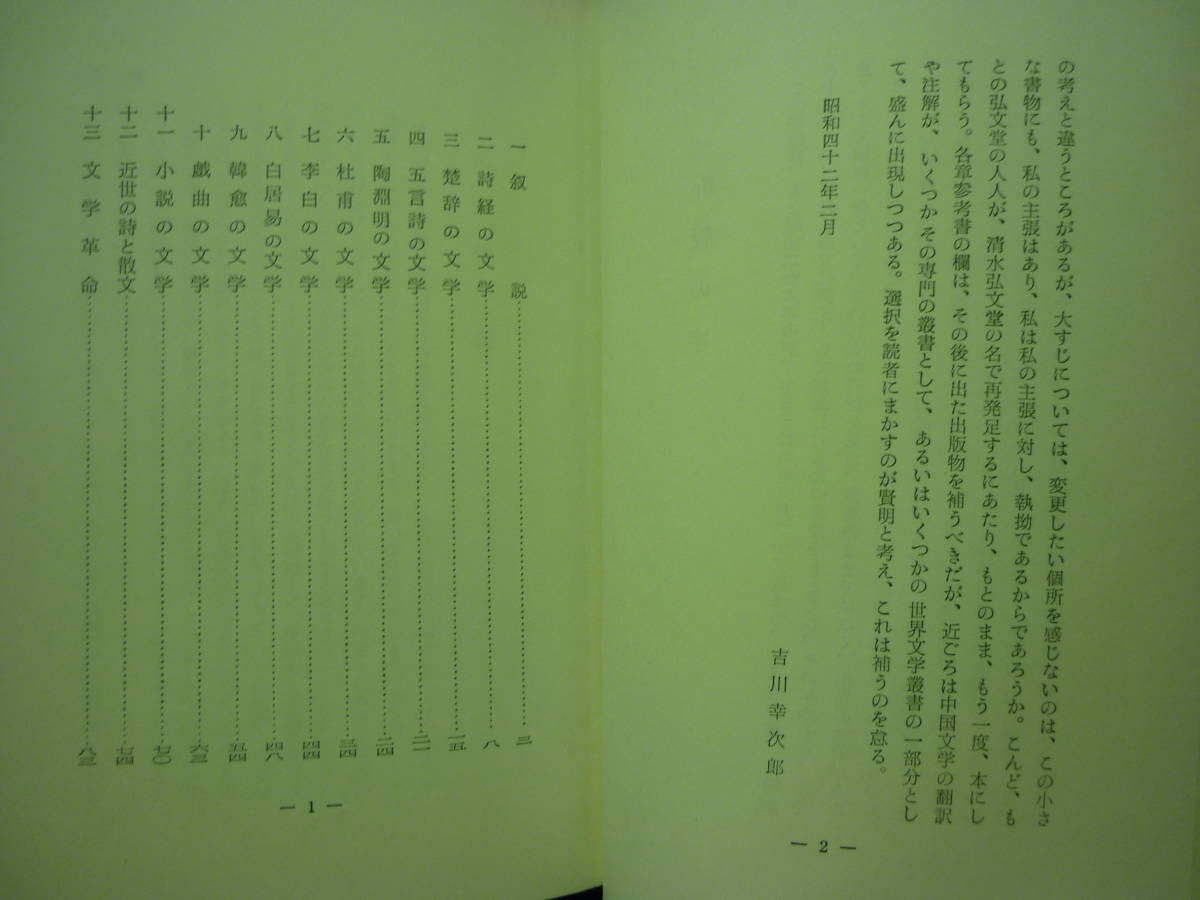 の考えと違うところがあるが、大すじについては、変更したい個所を感じないのは、この小さ
な書物にも、私の主張はあり、私は私の主張に対し、執拗であるからであろうか。こんど、も
との弘文堂の人人が、清水弘文堂の名で再発足するにあたり、もとのまま、もう一度、本にし
てもらう。各章参考書の欄は、その後に出た出版物を補うべきだが、近ごろは中国文学の翻訳
や注解が、いくつかその専門の叢書として、あるいはいくつかの世界文学叢書の一部分とし
て、盛んに出現しつつある。選択を読者にまかすのが賢明と考え、これは補うのを怠る。
昭和四十二年二月
吉川幸次郎
― 2 ―
一 叙説………三
二 詩経の文学………八
三 楚辞の文学………一五
四 五言詩の文学………二一
五 陶淵明の文学………二四
六 杜甫の文学………三四
七 李白の文学………四四
八 白居易の文学………四八
九 韓愈の文学………五四
十 戯曲の文学………六三
十一 小説の文学………七〇
十二 近世の詩と散文………七四
十三 文学革命………八三
― 1 ―